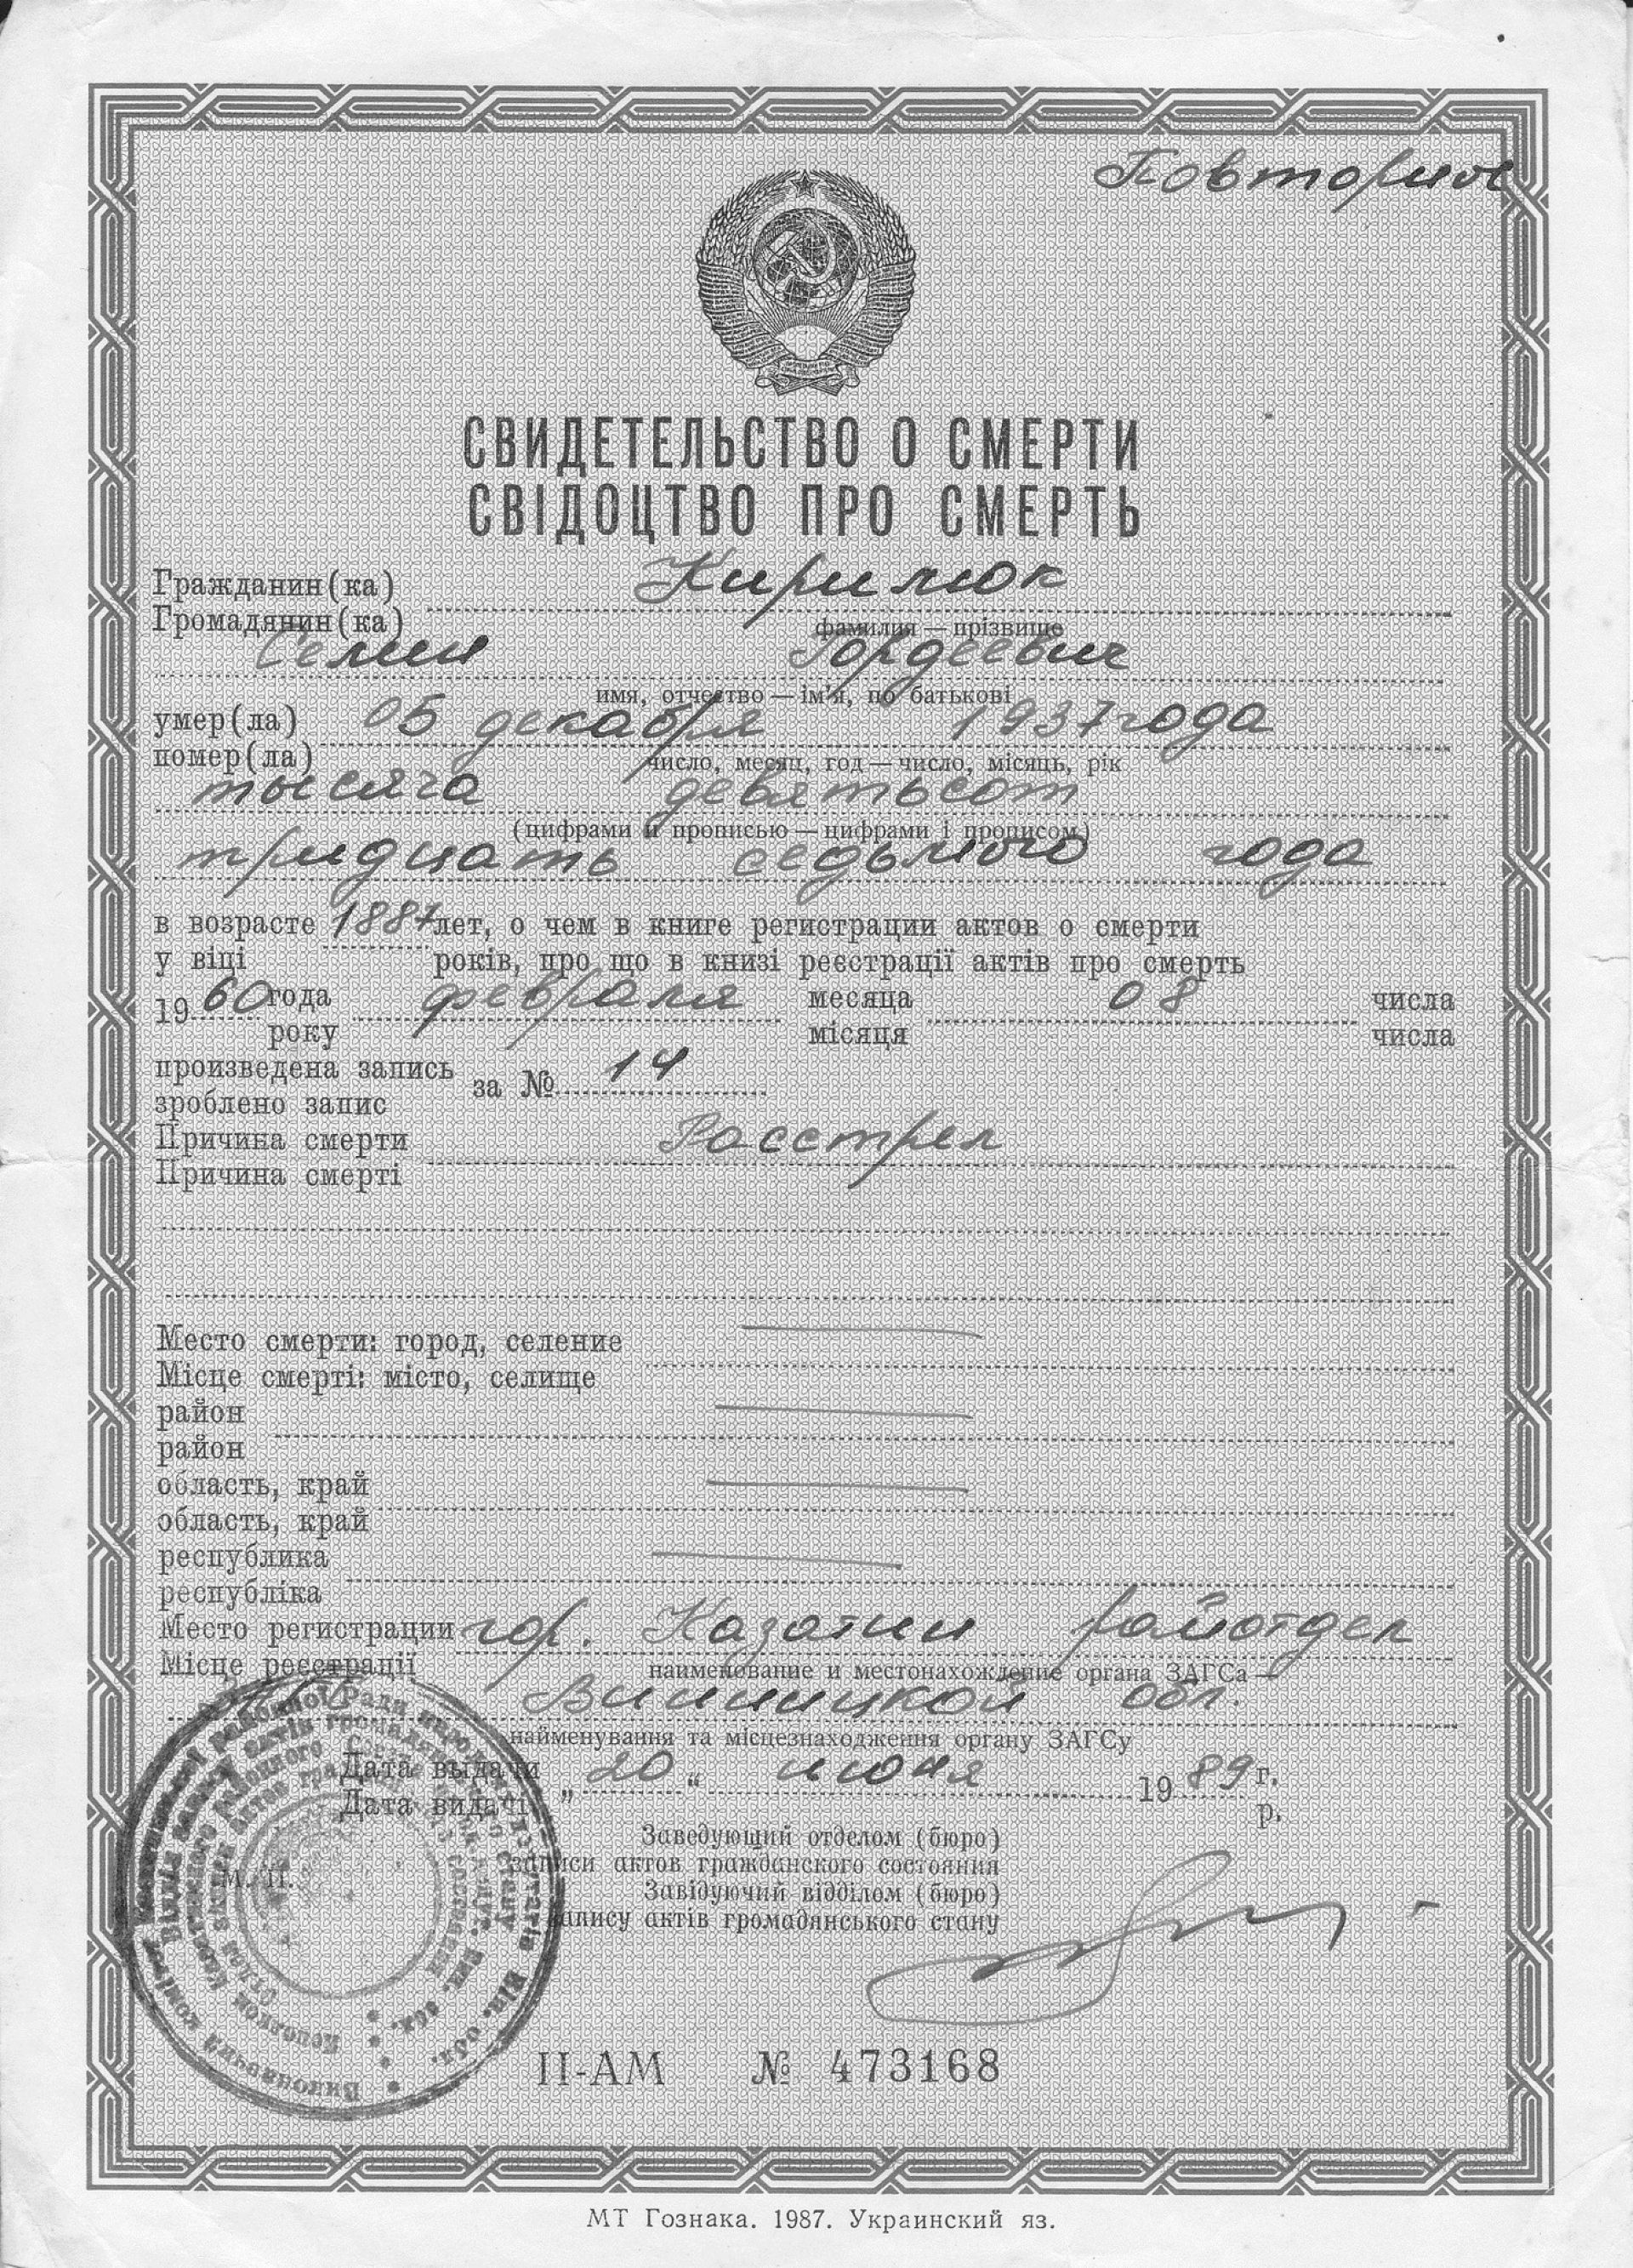 Повторное
СВИДЕТЕЛЬСТВО О СМЕРТИ
СВІДОЦТВО ПРО СМЕРТЬ
Гражданин(ка) Кирилюк
Громадянин(ка)
фамилия — прізвище
Семен Гордеевич
имя, отчество — ім'я, по батькові
умер(ла) 05 декабря 1937 года
помер(ла)
число, месяц, год — число, місяць, рік
тысяча девятьсот
(цифрами и прописью — цифрами і прописом)
тридцать седьмого года
в возрасте 1887 лет, о чем в книге регистрации актов о смерти
у віці років, про що в книзі реєстрації актів про смерть
19 60 года февраля месяца 08 числа
року місяця числа
произведена запись за № 14
зроблено запис
Причина смерти Расстрел
Причина смерті
Место смерти: город, селение
Місце смерті: місто, селище
район
район
область, край
область, край
республика
республіка
Место регистрации гор. Казатин райотдел
Місце реєстрації
наименование и местонахождение органа ЗАГСа —
Винницкой обл.
найменування та місцезнаходження органу ЗАГСу
Дата выдачи „ 20 “ июня 19 89 г.
Дата видачі р.
Заведующий отделом (бюро)
записи актов гражданского состояния
М. П.
Завідуючий відділом (бюро)
запису актів громадянського стану
II-АМ № 473168
МТ Гознака. 1987. Украинский яз.